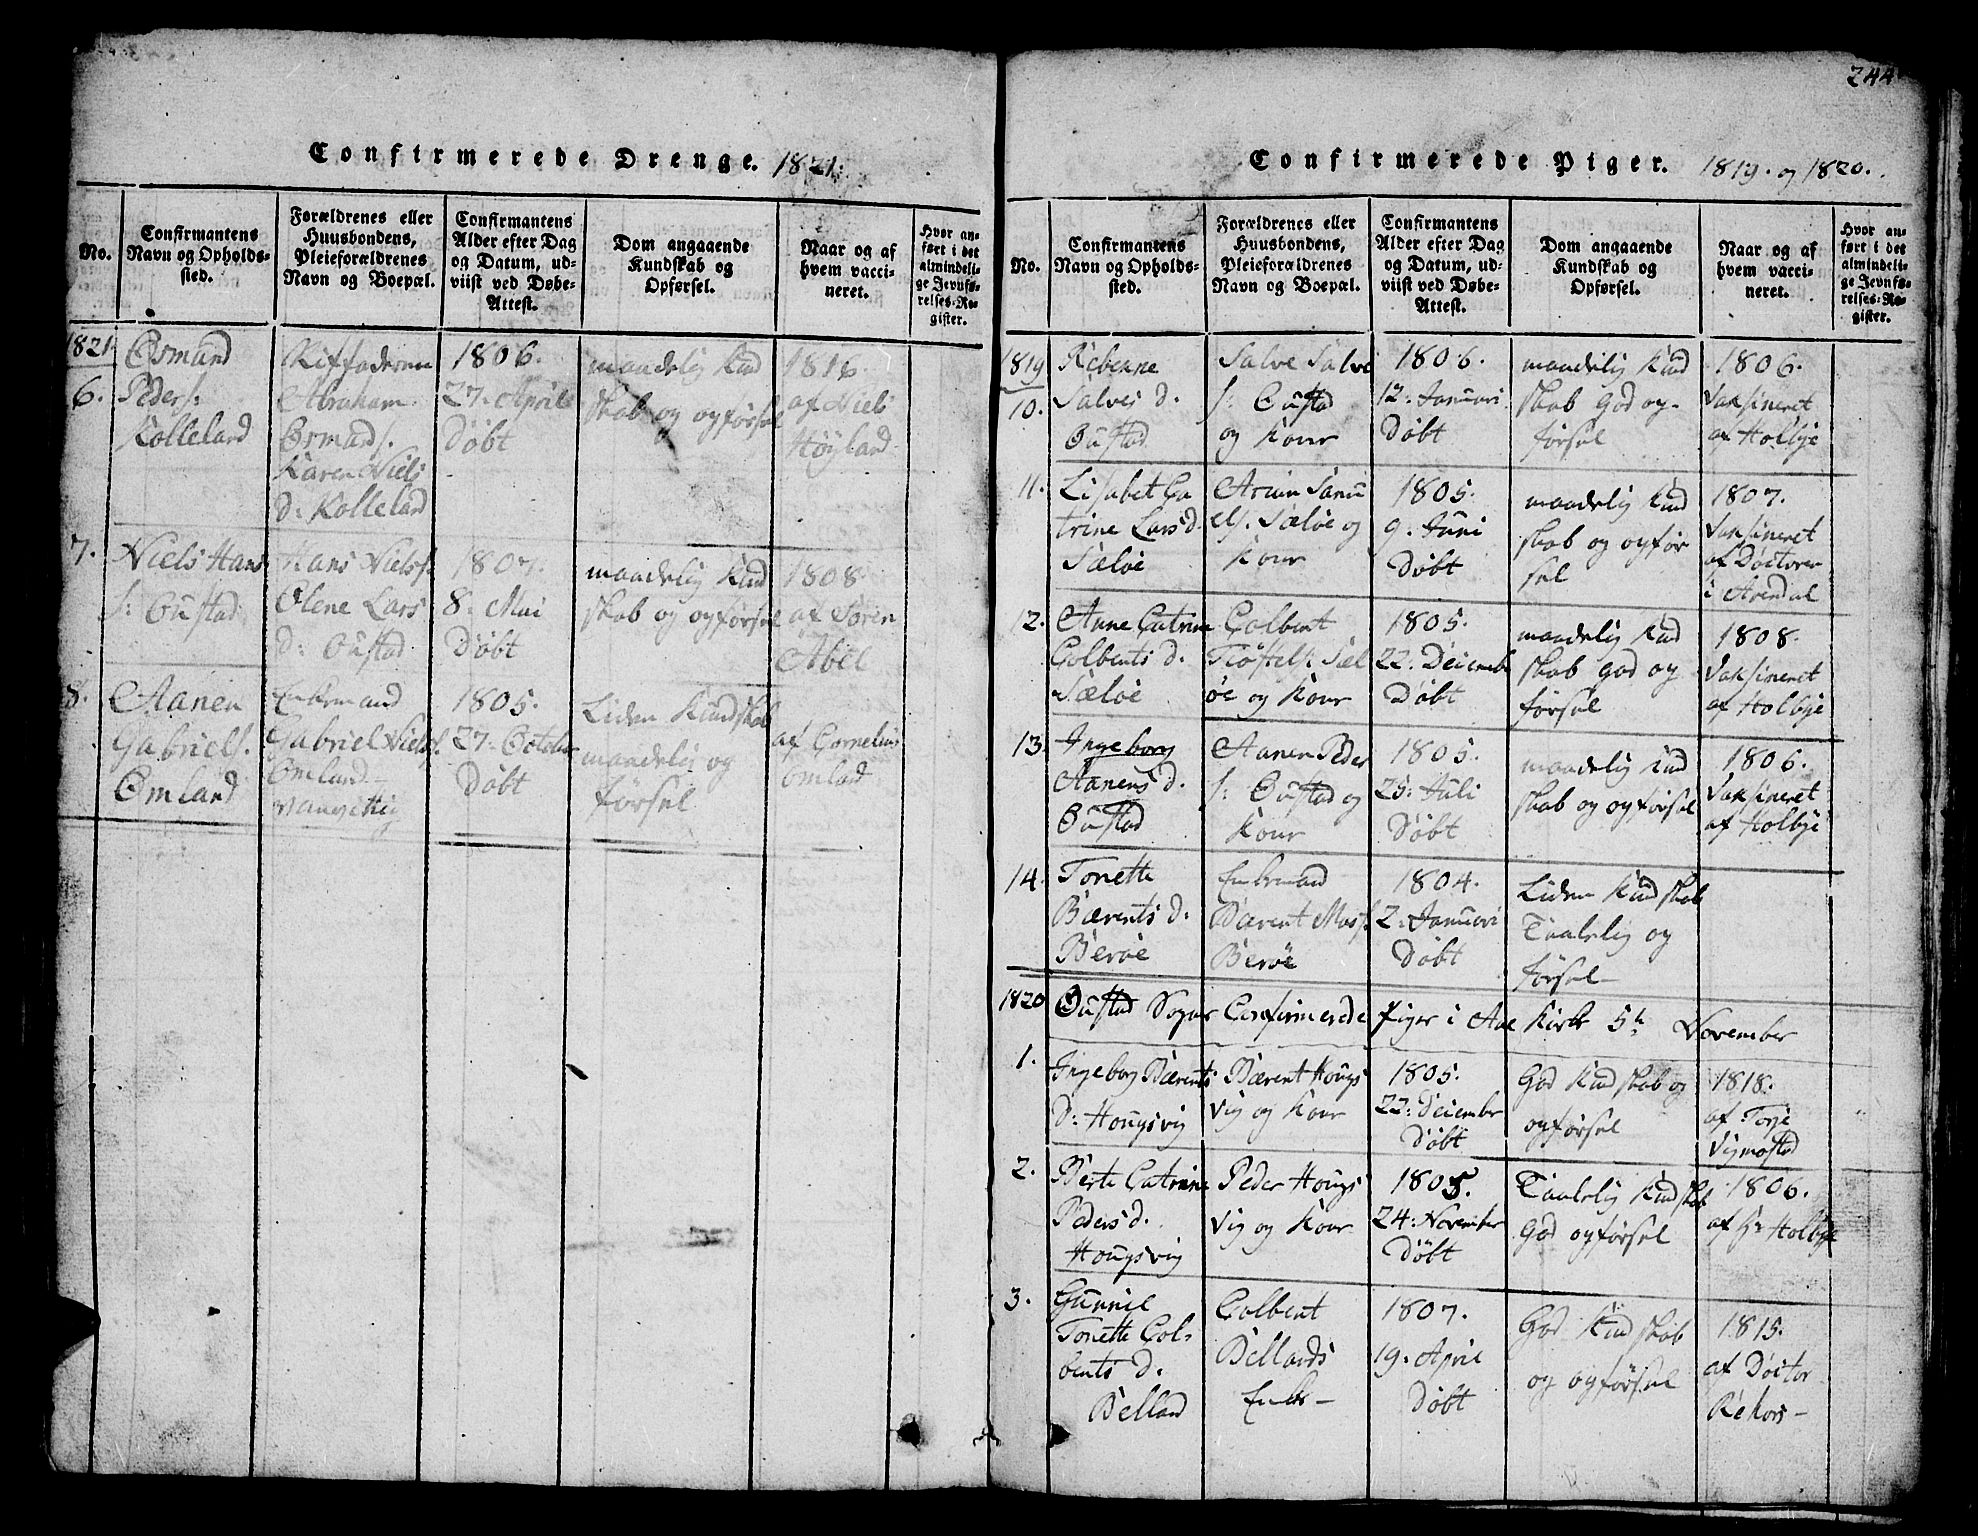 Confirmerede Drenge. 1821.
No.
Confirmantens
Navn og Opholds-
sted.
Forældrenes eller
Huusbondens,
Pleieforældrenes
Navn og Boepæl.
Confirmantens
Alder efter Dag
og Datum, ud-
viist ved Døbe-
Attest.
Dom angaaende
Kundskab og
Opførsel.
Naar og af
hvem vacci-
neret.
Hvor an-
ført i det
almindeli-
ge Jevnfø-
relses-Re-
gister.
1821
6.
Osmund
Peders:
Kolleland
Abraham
Osmunds.
Karen Niels
d: Kolleland
1806.
27. April
Døbt
maadelig Kund
skab og opførsel
1816.
af Niels
Høyland
7.
Niels Hans
s: Oustad
Hans Niels.
Olene Lars
d: Oustad
1807.
8. Mai
Døbt
maadelig Kund
skab og opførsel
1808.
af Søren
Abel
8.
Aanen
Gabriels.
Omland
Enkemand
Gabriel Niels.
Omland
1805.
27. October
Døbt
Liden Kundskab
maadelig op
førsel
af Cornelius
Omland
244
Confirmerede Piger. 1819. og 1820.
No.
Confirmantens
Navn og Opholds-
sted.
Forældrenes eller
Huusbondens,
Pleieforældrenes
Navn og Boepæl.
Confirmantens
Alder efter Dag
og Datum, ud-
viist ved Døbe-
Attest.
Dom angaaende
Kundskab og
Opførsel.
Naar og af
hvem vacci-
neret.
Hvor an-
ført i det
almindeli-
ge Jevnfø-
relses-Re-
gister.
1819
10.
Rebenne
Salves d.
Oustad
Salve Salve
s: Oustad
og Kone
1806.
12. Januari
Døbt
maadelig Kund
skab God op-
førsel
1806.
Vaksineret
af Holbye
11.
Lisabet Ca
trine Lars d.
Sæløe
Sæløe og
Kone
1805.
9. Juni
Døbt
maadelig Kund
skab og opfør
sel
1807.
Vaksineret
af Doctoren
i Arendal
12.
Anne Catrine
Colbents d.
Sæløe
Colbent
Tiøstels. Sæl
øe og Kone
1805.
22. December
Døbt
maadelig Kund
skab god op
førsel
1808.
Vaksineret
af Holbye
13.
Ingeborg
Aanens d.
Oustad
Aanen Peder
s: Oustad og
Kone
1805.
25. Juli
Døbt
maadelig Kund
skab og opførsel
1806.
Vaksineret
af Holbye
14.
Tonette
Bærents d.
Berøe
Enkemand
Bærent Mos.
Berøe
1804.
2. Januari
Døbt
Liden Kundskab
Taalelig op
førsel
1820 Oustad Sogns Confirmerede Piger i Aae Kirke 5te November
1.
Ingeborg Bærents
d: Hougsvig
Bærent Hougs
vig og Kone
1805.
22. December
Døbt
God Kundskab og
opførsel
1818.
af Torje
Vigmostad
2.
Berte Catrine
Peders d.
Hougsvig
Peder Hougs
vig og Kone
1805.
24. November
Døbt
Taalelig Kundskab
God opførsel
1806.
af Hr Holbye
3.
Gunnil
Tonette Col-
bents d.
Belland
Colbent
Bellands
Enke
1807.
19. April
Døbt
God Kundskab
og opførsel
1815.
af Doctor